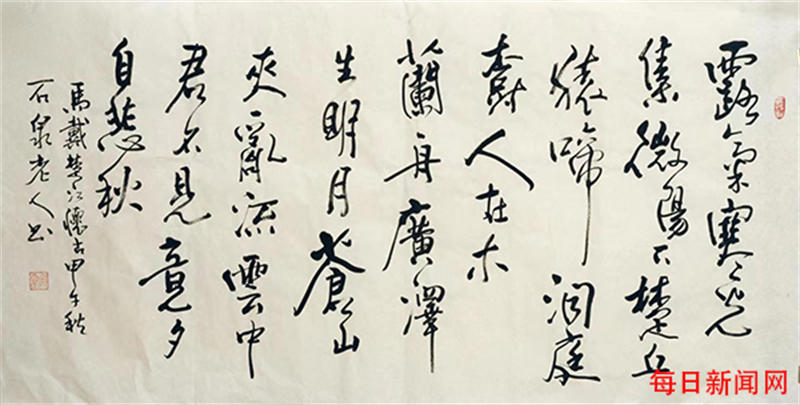 露氣寒光
集微陽下楚丘
猿啼洞庭
樹人在木
蘭舟廣澤
生明月蒼山
夾亂流雲中
君不見竟夕
自悲秋
馬戴楚江懷古甲午秋
石泉老人书
每日新闻网